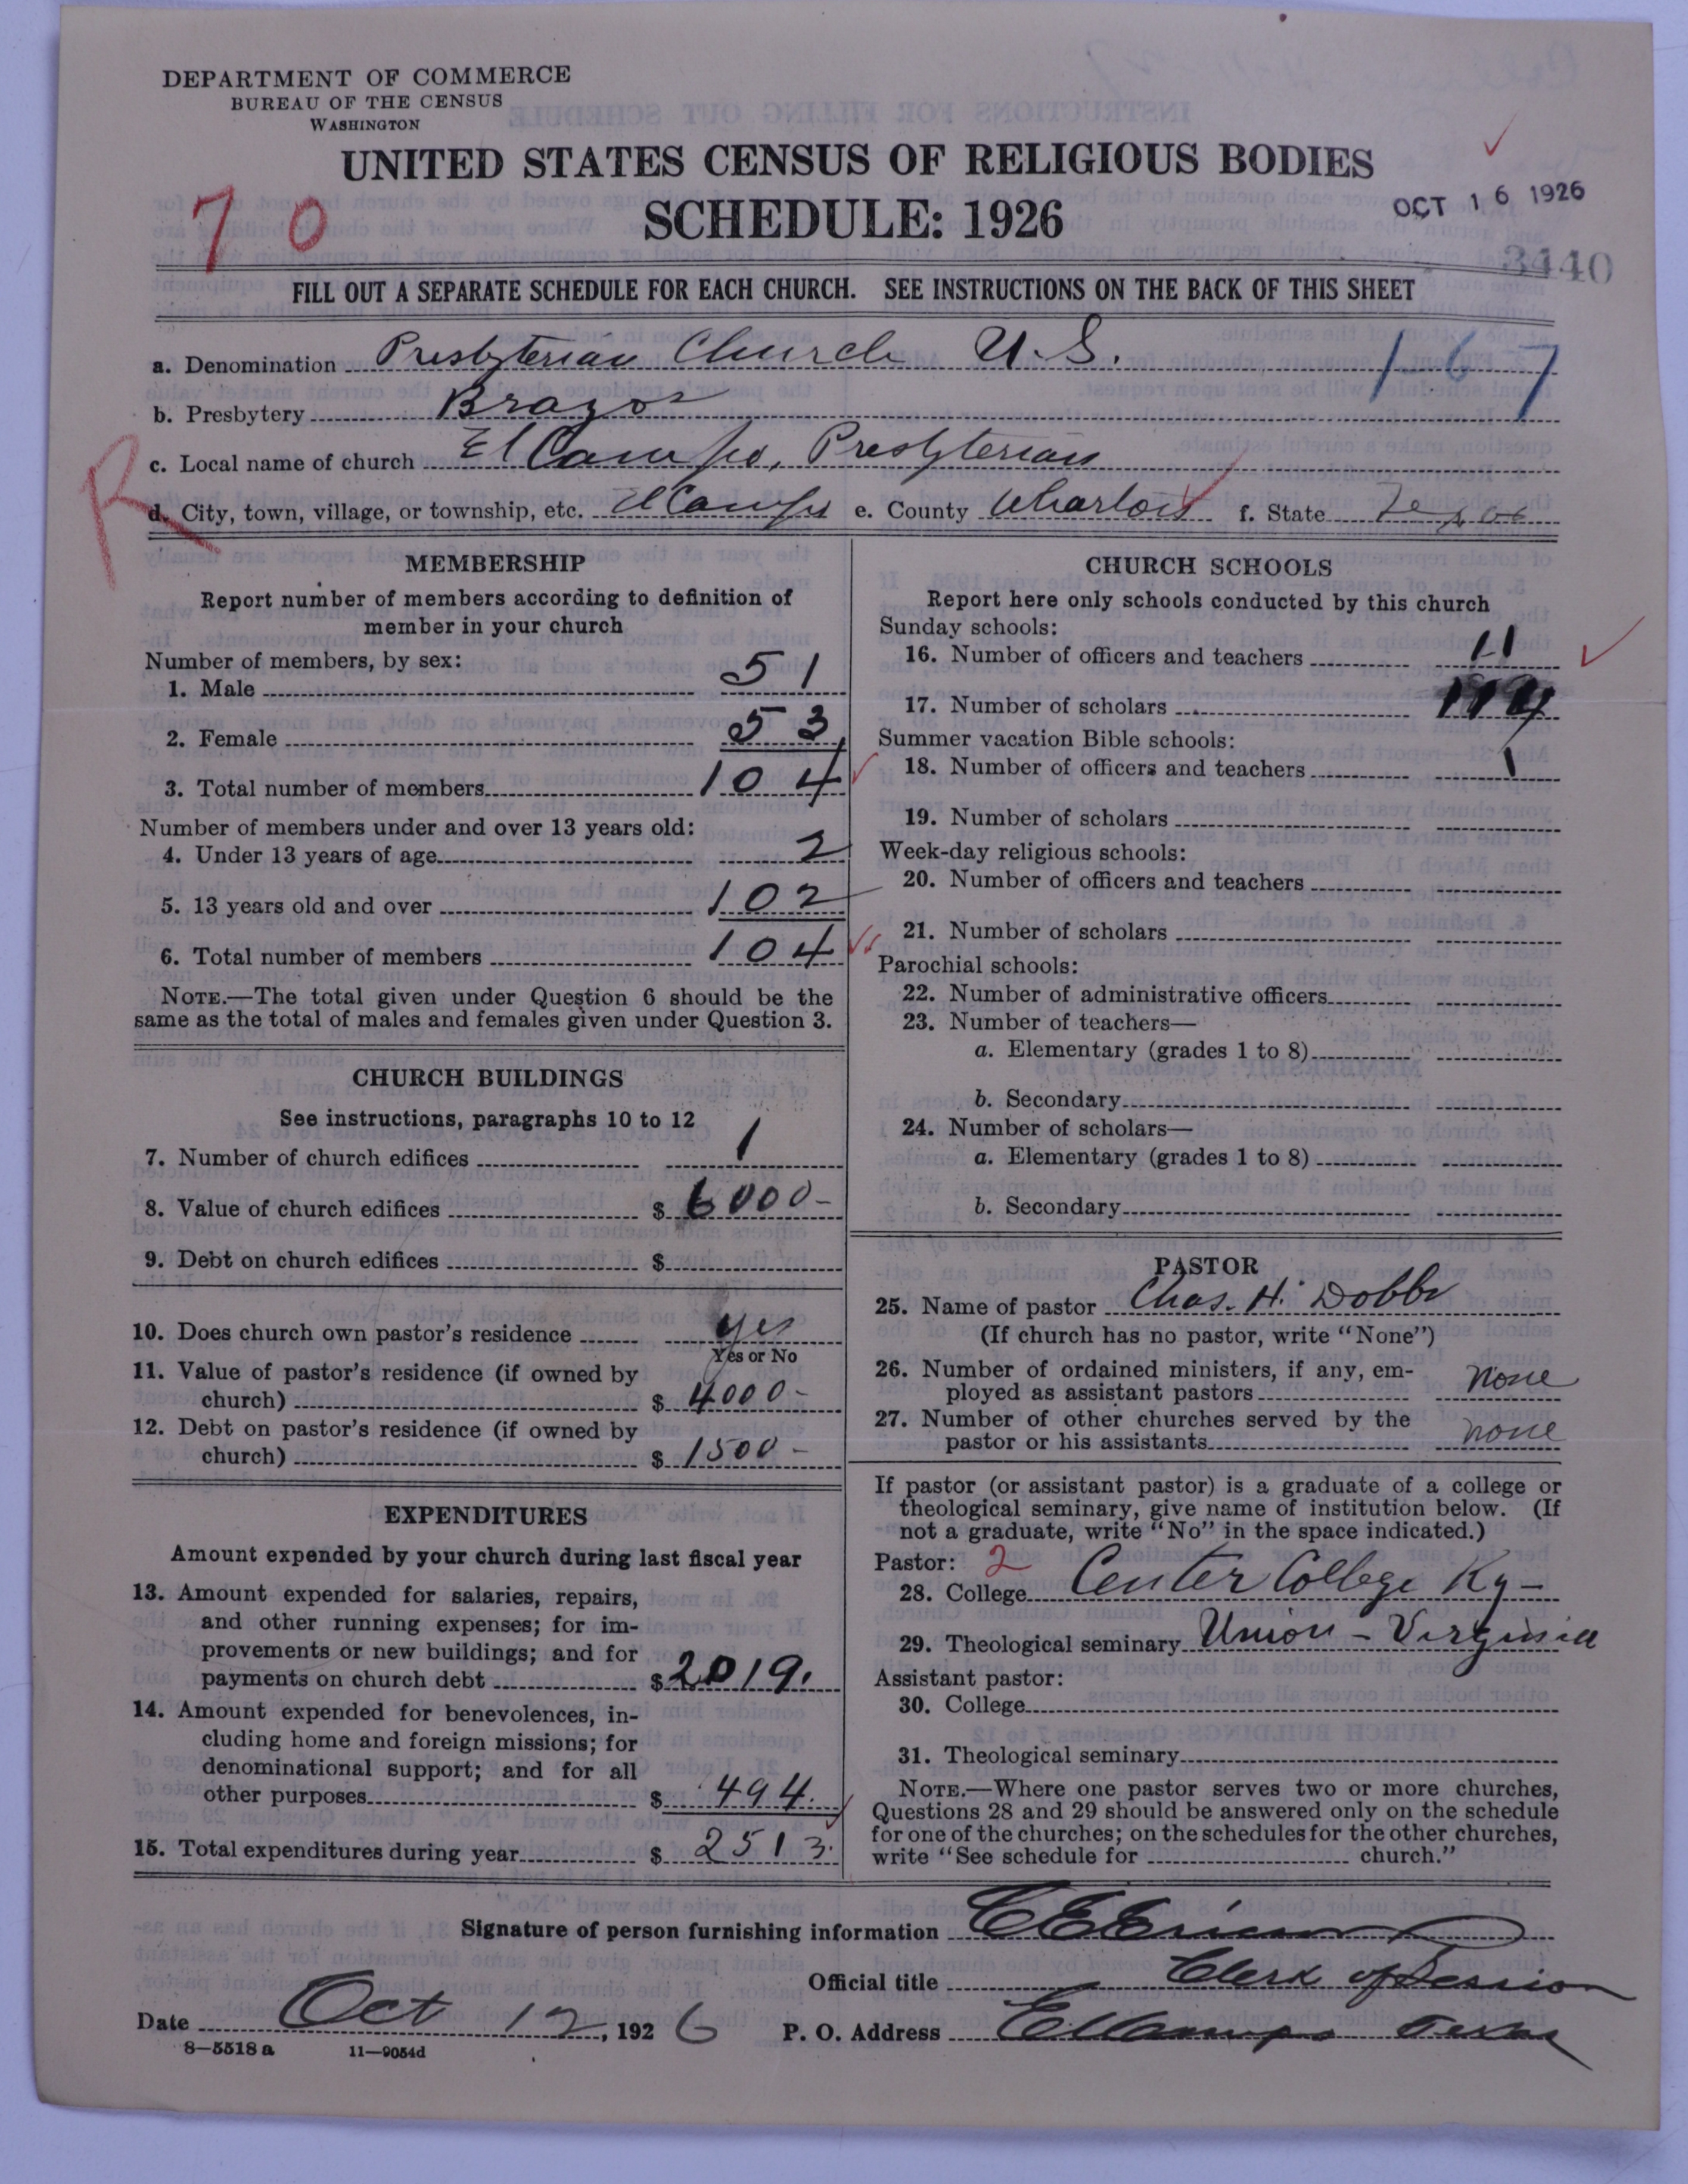 DEPARTMENT OF COMMERCE
BUREAU OF THE CENSUS
WASHINGTON
UNITED STATES CENSUS OF RELIGIOUS BODIES
SCHEDULE: 1926
OCT 16 1926
70
3440
FILL OUT A SEPARATE SCHEDULE FOR EACH CHURCH. SEE INSTRUCTIONS ON THE BACK OF THIS SHEET
a. Denomination Presbyterian Church U.S.
1-67
b. Presbytery Brazos
c. Local name of church El Campo, Presbyterian
R
d. City, town, village, or township, etc. El Campo e. County Wharton f. State Texas
MEMBERSHIP
Report number of members according to definition of
member in your church
Number of members, by sex:
1. Male 51
2. Female 53
3. Total number of members 104
Number of members under and over 13 years old:
4. Under 13 years of age 2
5. 13 years old and over 102
6. Total number of members 104
NOTE.—The total given under Question 6 should be the
same as the total of males and females given under Question 3.
CHURCH BUILDINGS
See instructions, paragraphs 10 to 12
7. Number of church edifices 1
8. Value of church edifices $ 6000-
9. Debt on church edifices $
10. Does church own pastor's residence yes
Yes or No
11. Value of pastor's residence (if owned by
church) $ 4000-
12. Debt on pastor's residence (if owned by
church) $ 1500-
EXPENDITURES
Amount expended by your church during last fiscal year
13. Amount expended for salaries, repairs,
and other running expenses; for im-
provements or new buildings; and for
payments on church debt $ 2019.
14. Amount expended for benevolences, in-
cluding home and foreign missions; for
denominational support; and for all
other purposes $ 494.
15. Total expenditures during year $ 2513.
CHURCH SCHOOLS
Report here only schools conducted by this church
Sunday schools:
16. Number of officers and teachers 11
17. Number of scholars 114
Summer vacation Bible schools:
18. Number of officers and teachers
19. Number of scholars
Week-day religious schools:
20. Number of officers and teachers
21. Number of scholars
Parochial schools:
22. Number of administrative officers
23. Number of teachers—
a. Elementary (grades 1 to 8)
b. Secondary
24. Number of scholars—
a. Elementary (grades 1 to 8)
b. Secondary
PASTOR
25. Name of pastor Chas. H. Dobbs
(If church has no pastor, write "None")
26. Number of ordained ministers, if any, em-
ployed as assistant pastors None
27. Number of other churches served by the
pastor or his assistants none
If pastor (or assistant pastor) is a graduate of a college or
theological seminary, give name of institution below. (If
not a graduate, write "No" in the space indicated.)
Pastor: 2
28. College Center College Ky-
29. Theological seminary Union - Virginia
Assistant pastor:
30. College
31. Theological seminary
NOTE.—Where one pastor serves two or more churches,
Questions 28 and 29 should be answered only on the schedule
for one of the churches; on the schedules for the other churches,
write "See schedule for church."
Signature of person furnishing information
Official title Clerk of Session
Date Oct 12, 1926 P. O. Address El Campo Texas
8-5518a 11-9054d